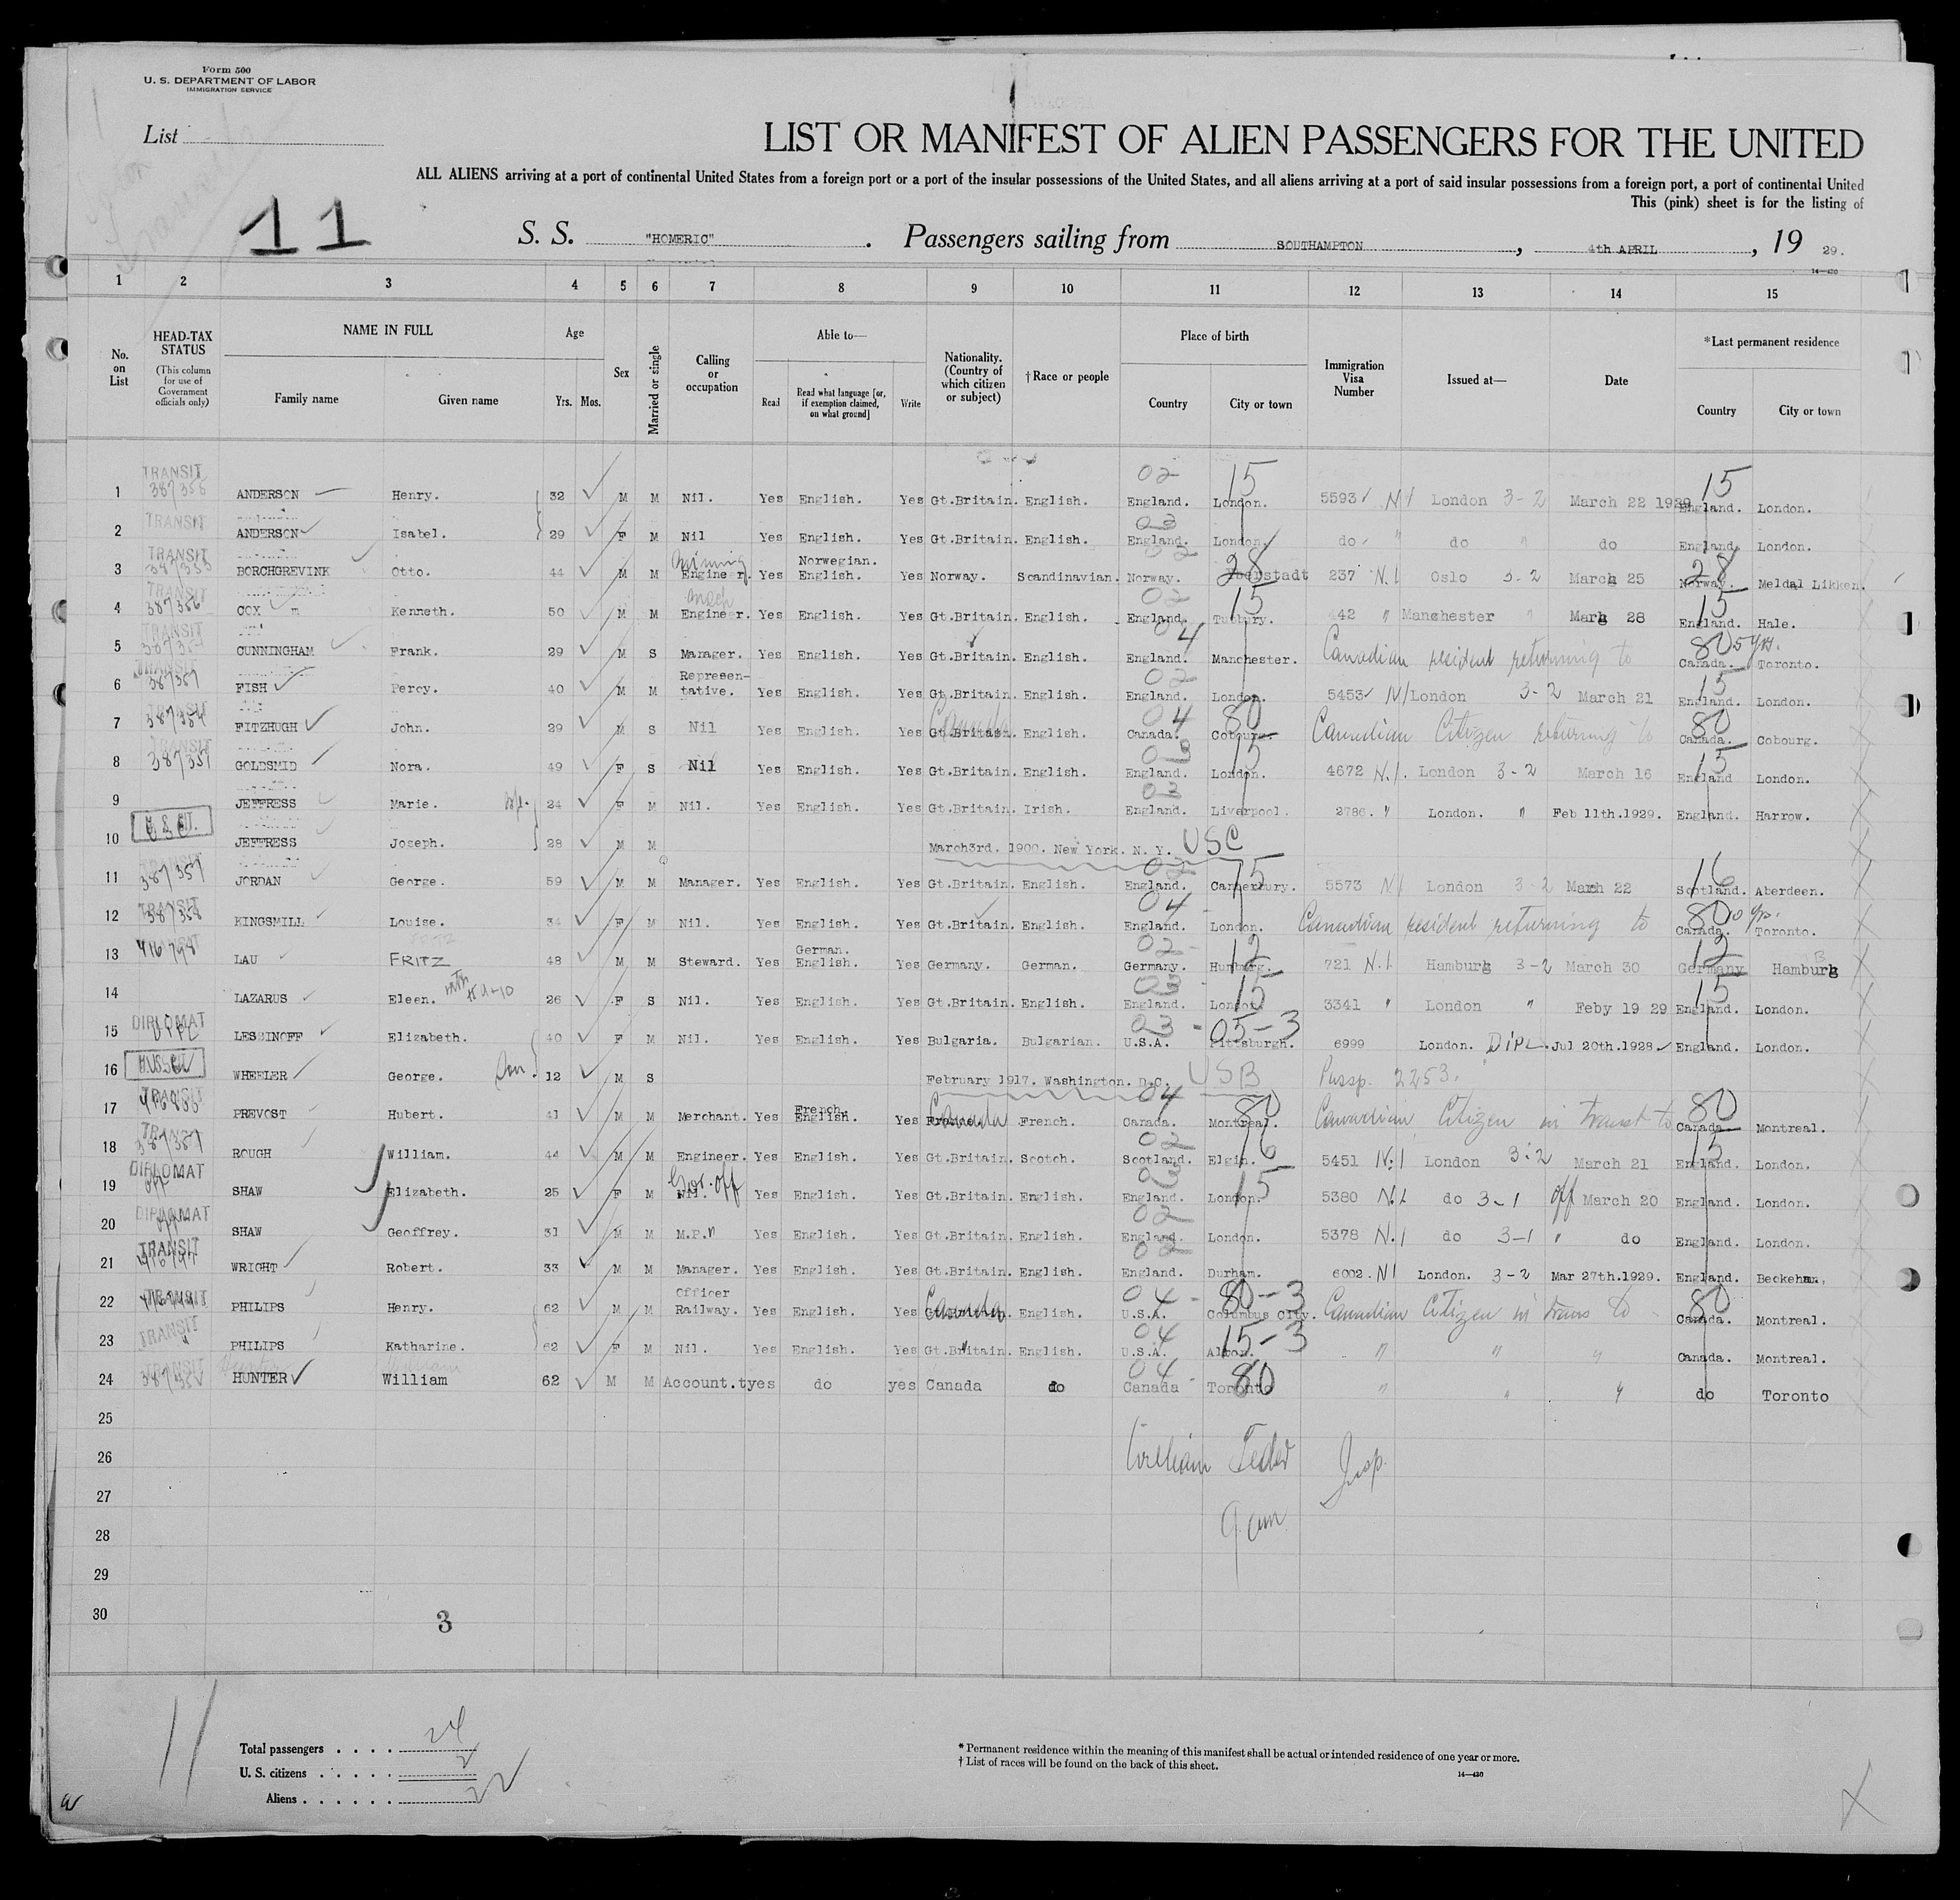 Form 500
U. S. DEPARTMENT OF LABOR
IMMIGRATION SERVICE
List
LIST OR MANIFEST OF ALIEN PASSENGERS FOR THE UNITED
ALL ALIENS arriving at a port of continental United States from a foreign port or a port of the insular possessions of the United States, and all aliens arriving at a port of said insular possessions from a foreign port, a port of continental United
This (pink) sheet is for the listing of
11
S. S. "HOMERIC". Passengers sailing from SOUTHAMPTON, 4th APRIL, 19 29.
14—430
1 2 3 4 5 6 7 8 9 10 11 12 13 14 15
No. on List
HEAD-TAX STATUS
(This column for use of Government officials only)
NAME IN FULL
Family name Given name
Age
Yrs. Mos.
Sex
Married or single
Calling or occupation
Able to—
Read Read what language [or, if exemption claimed, on what ground] Write
Nationality. (Country of which citizen or subject)
†Race or people
Place of birth
Country City or town
Immigration Visa Number
Issued at—
Date
*Last permanent residence
Country City or town
1 TRANSIT 387356 ANDERSON Henry. 32 M M Nil. Yes English. Yes Gt.Britain. English. 02 England. 15 London. 5593 N1 London 3-2 March 22 1929 15 England. London.
2 TRANSIT ANDERSON Isabel. 29 F M Nil Yes English. Yes Gt.Britain. English. 03 England. London. do " do " do England. London.
3 TRANSIT BORCHGREVINK Otto. 44 M M Mining Engineer. Yes Norwegian. English. Yes Norway. Scandinavian. 02 Norway. 28 237 N.1 Oslo 3-2 March 25 28 Norway. Meldal Likken.
4 TRANSIT 387356 COX m Kenneth. 50 M M Mech Engineer. Yes English. Yes Gt.Britain. English. 02 England. 15 Tutbury. 442 " Manchester " Marh 28 15 England. Hale.
5 TRANSIT CUNNINGHAM Frank. 29 M S Manager. Yes English. Yes Gt.Britain. English. 04 England. Manchester. Canadian resident returning to 80 5 yrs. Canada. Toronto.
6 TRANSIT 387357 FISH Percy. 40 M M Represen-tative. Yes English. Yes Gt.Britain. English. 02 England. London. 5453 N1 London 3-2 March 21 15 England. London.
7 TRANSIT FITZHUGH John. 29 M S Nil Yes English. Yes Gt.Britain. Canada English. 04 Canada. 80 Cobourg. Canadian Citizen returning to 80 Canada. Cobourg.
8 TRANSIT 387357 GOLDSMID Nora. 49 F S Nil Yes English. Yes Gt.Britain. English. 03 England. 15 London. 4672 N.1. London 3-2 March 16 15 England London.
9 JEFFRESS Marie. 24 F M Nil. Yes English. Yes Gt.Britain. Irish. 03 England. Liverpool. 2786. " London. " Feb 11th.1929. England. Harrow.
10 JEFFRESS Joseph. 28 M M March3rd. 1900. New York. N. Y. USC
11 TRANSIT 387357 JORDAN George. 59 M M Manager. Yes English. Yes Gt.Britain. English. 02 England. 15 Canterbury. 5573 N1 London 3-2 March 22 16 Scotland. Aberdeen.
12 TRANSIT 387358 KINGSMILL Louise. 34 F M Nil. Yes English. Yes Gt.Britain. English. 04 England. London. Canadian resident returning to 80 Canada. Toronto.
13 416798 LAU FRITZ 48 M M Steward. Yes German. English. Yes Germany. German. 02 Germany. 12 721 N.1 Hamburg 3-2 March 30 12 Germany Hamburg
14 LAZARUS Eleen. 26 F S Nil. Yes English. Yes Gt.Britain. English. 03 England. 15 London. 3341 " London " Feby 19 29 15 England. London.
15 DIPLOMAT DIPL LESSINOFF Elizabeth. 40 F M Nil. Yes English. Yes Bulgaria. Bulgarian. 03 U.S.A. 05-3 Pittsburgh. 6999 London. DIPL. Jul 20th.1928. England. London.
16 WHEELER George. 12 M S February 1917. Washington. D.C. USB Passp. 2253.
17 TRANSIT PREVOST Hubert. 41 M M Merchant. Yes French. English. Yes Canada French. 04 Canada. 80 Montreal. Canadian Citizen in transit to 80 Canada Montreal.
18 TRANSIT 387387 ROUGH William. 44 M M Engineer. Yes English. Yes Gt.Britain. Scotch. 02 Scotland. 16 Elgin. 5451 N.1 London 3-2 March 21 15 England. London.
19 DIPLOMAT off SHAW Elizabeth. 25 F M Nil. Gov. off Yes English. Yes Gt.Britain. English. 03 England. 15 London. 5380 N.1 do 3-1 off March 20 England. London.
20 DIPLOMAT off SHAW Geoffrey. 31 M M M.P. Yes English. Yes Gt.Britain. English. 02 England. London. 5378 N.1 do 3-1 " do England. London.
21 TRANSIT 416797 WRIGHT Robert. 33 M M Manager. Yes English. Yes Gt.Britain. English. 02 England. Durham. 6002. N1 London. 3-2 Mar 27th.1929. England. Beckeham.
22 TRANSIT PHILIPS Henry. 62 M M Officer Railway. Yes English. Yes Canada English. 04 U.S.A. 80-3 Columbus City. Canadian Citizen in trans to 80 Canada. Montreal.
23 TRANSIT " PHILIPS Katharine. 62 F M Nil. Yes English. Yes Gt.Britain. English. 04 U.S.A. 15-3 Alton. " " " Canada. Montreal.
24 TRANSIT HUNTER William 62 M M Account.t yes do yes Canada do 04 Canada 80 Toronto " " " do Toronto
25
26 William Insp.
27
28
29
30
3
11
Total passengers . . . . 24
U. S. citizens . . . . . 2
Aliens . . . . . . 22
* Permanent residence within the meaning of this manifest shall be actual or intended residence of one year or more.
† List of races will be found on the back of this sheet.
14—430